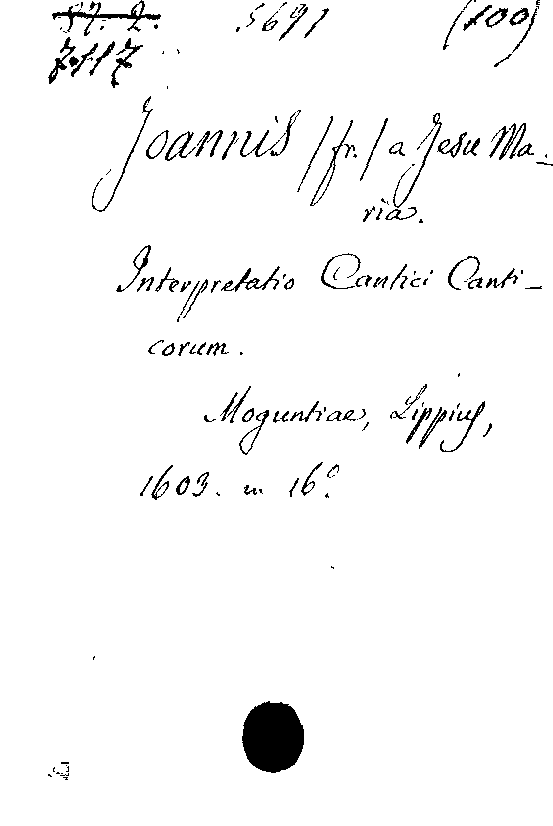 37. 2. 5691 (100)
7117
Joannis /fr./ a Jesu Ma-
ria.
Interpretatio Cantici Canti-
corum.
Moguntiae, Lippius,
1603. in 16º.